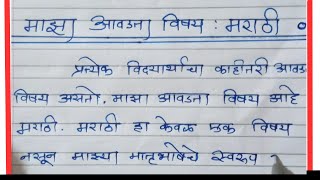 माझा आवडता विषय : मराठी
प्रत्येक विद्यार्थ्याचा काहीतरी आवड
विषय असतो. माझा आवडता विषय आहे
मराठी. मराठी हा केवळ एक विषय
नसून माझ्या मातृभाषेचे स्वरूप